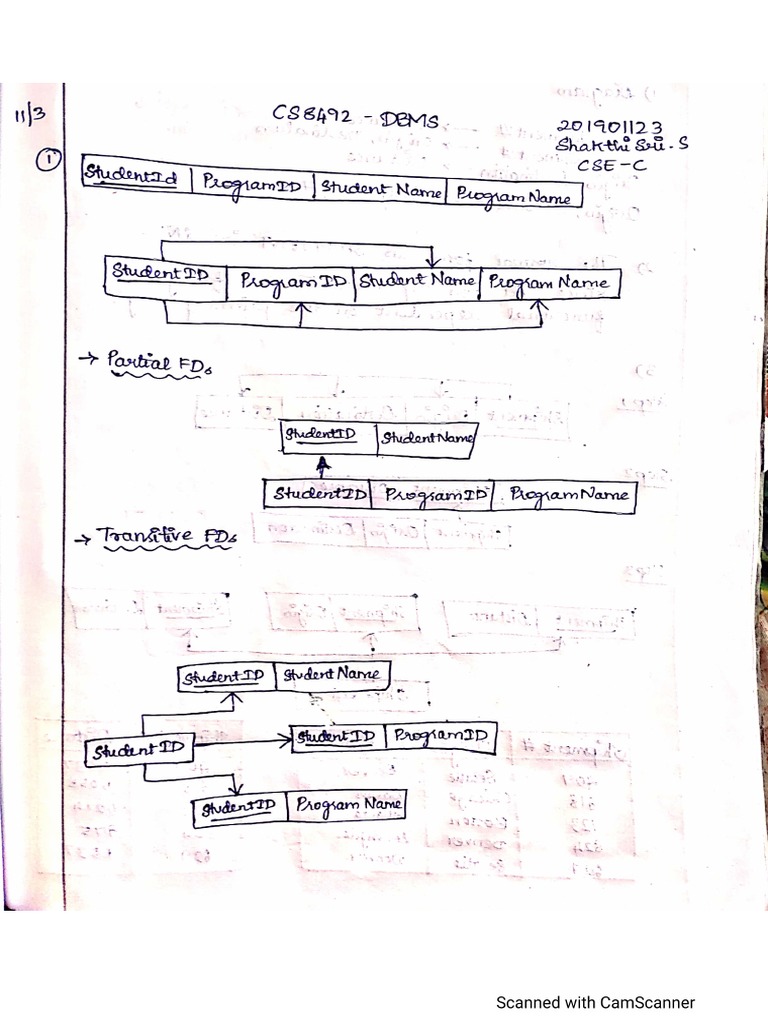 11/3
CS8492 - DBMS
201901123
Shakthi Sri.S
CSE-C
①
StudentId | ProgramID | Student Name | Program Name
Student ID | Program ID | Student Name | Program Name
→ Partial FDs
StudentID | StudentName
StudentID | ProgramID | ProgramName
→ Transitive FDs
StudentID | Student Name
Student ID
StudentID | ProgramID
StudentID | Program Name
Scanned with CamScanner